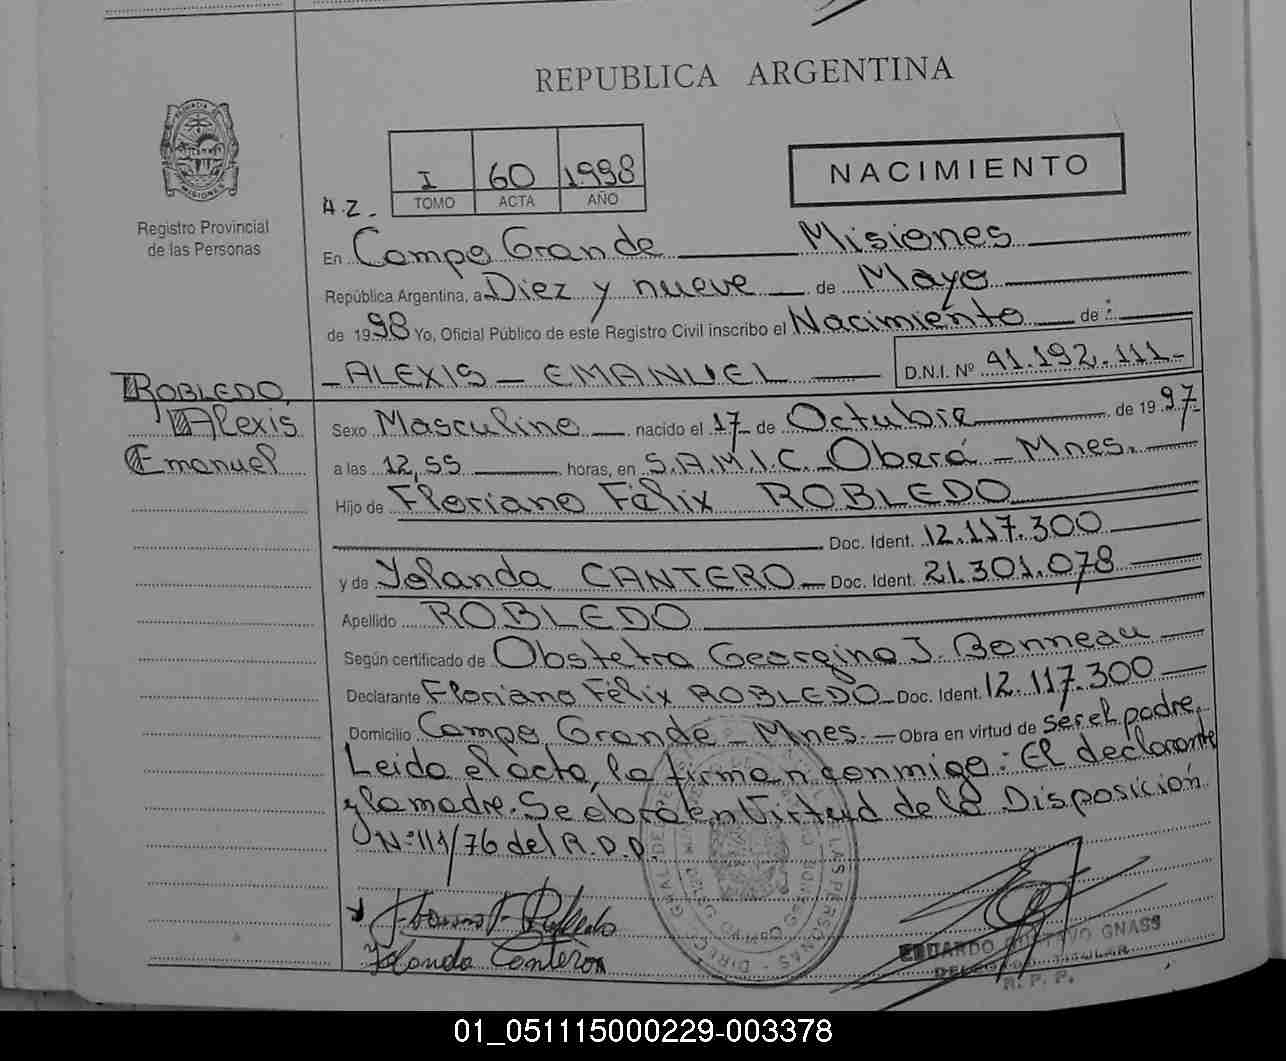 REPUBLICA ARGENTINA
I 60 1998
TOMO ACTA AÑO
NACIMIENTO
Registro Provincial
de las Personas
A.Z.
En Campo Grande Misiones
República Argentina, a Diez y nueve de Mayo
de 1998 Yo, Oficial Público de este Registro Civil inscribo el Nacimiento de:
-ALEXIS - EMANUEL D.N.I. Nº 41.192.111-
ROBLEDO
Alexis
Emanuel
Sexo Masculino nacido el 17 de Octubre de 1997
a las 12,55 horas, en S.A.M.I.C. Oberá - Mnes.
Hijo de Floriano Félix ROBLEDO
Doc. Ident. 12.117.300
y de Yolanda CANTERO Doc. Ident. 21.301.078
Apellido ROBLEDO
Según certificado de Obstetra Georgina J. Bonneau
Declarante Floriano Félix ROBLEDO Doc. Ident. 12.117.300
Domicilio Campo Grande - Mnes. Obra en virtud de ser el padre.
Leida el acta, la firman conmigo: El declarante
y la madre. Se labra en Virtud de la Disposición
Nº 111/76 del R.P.P.
Yolanda Cantero
EDUARDO GUSTAVO GNASS
DELEGADO TITULAR
R. P. P.
01_051115000229-003378